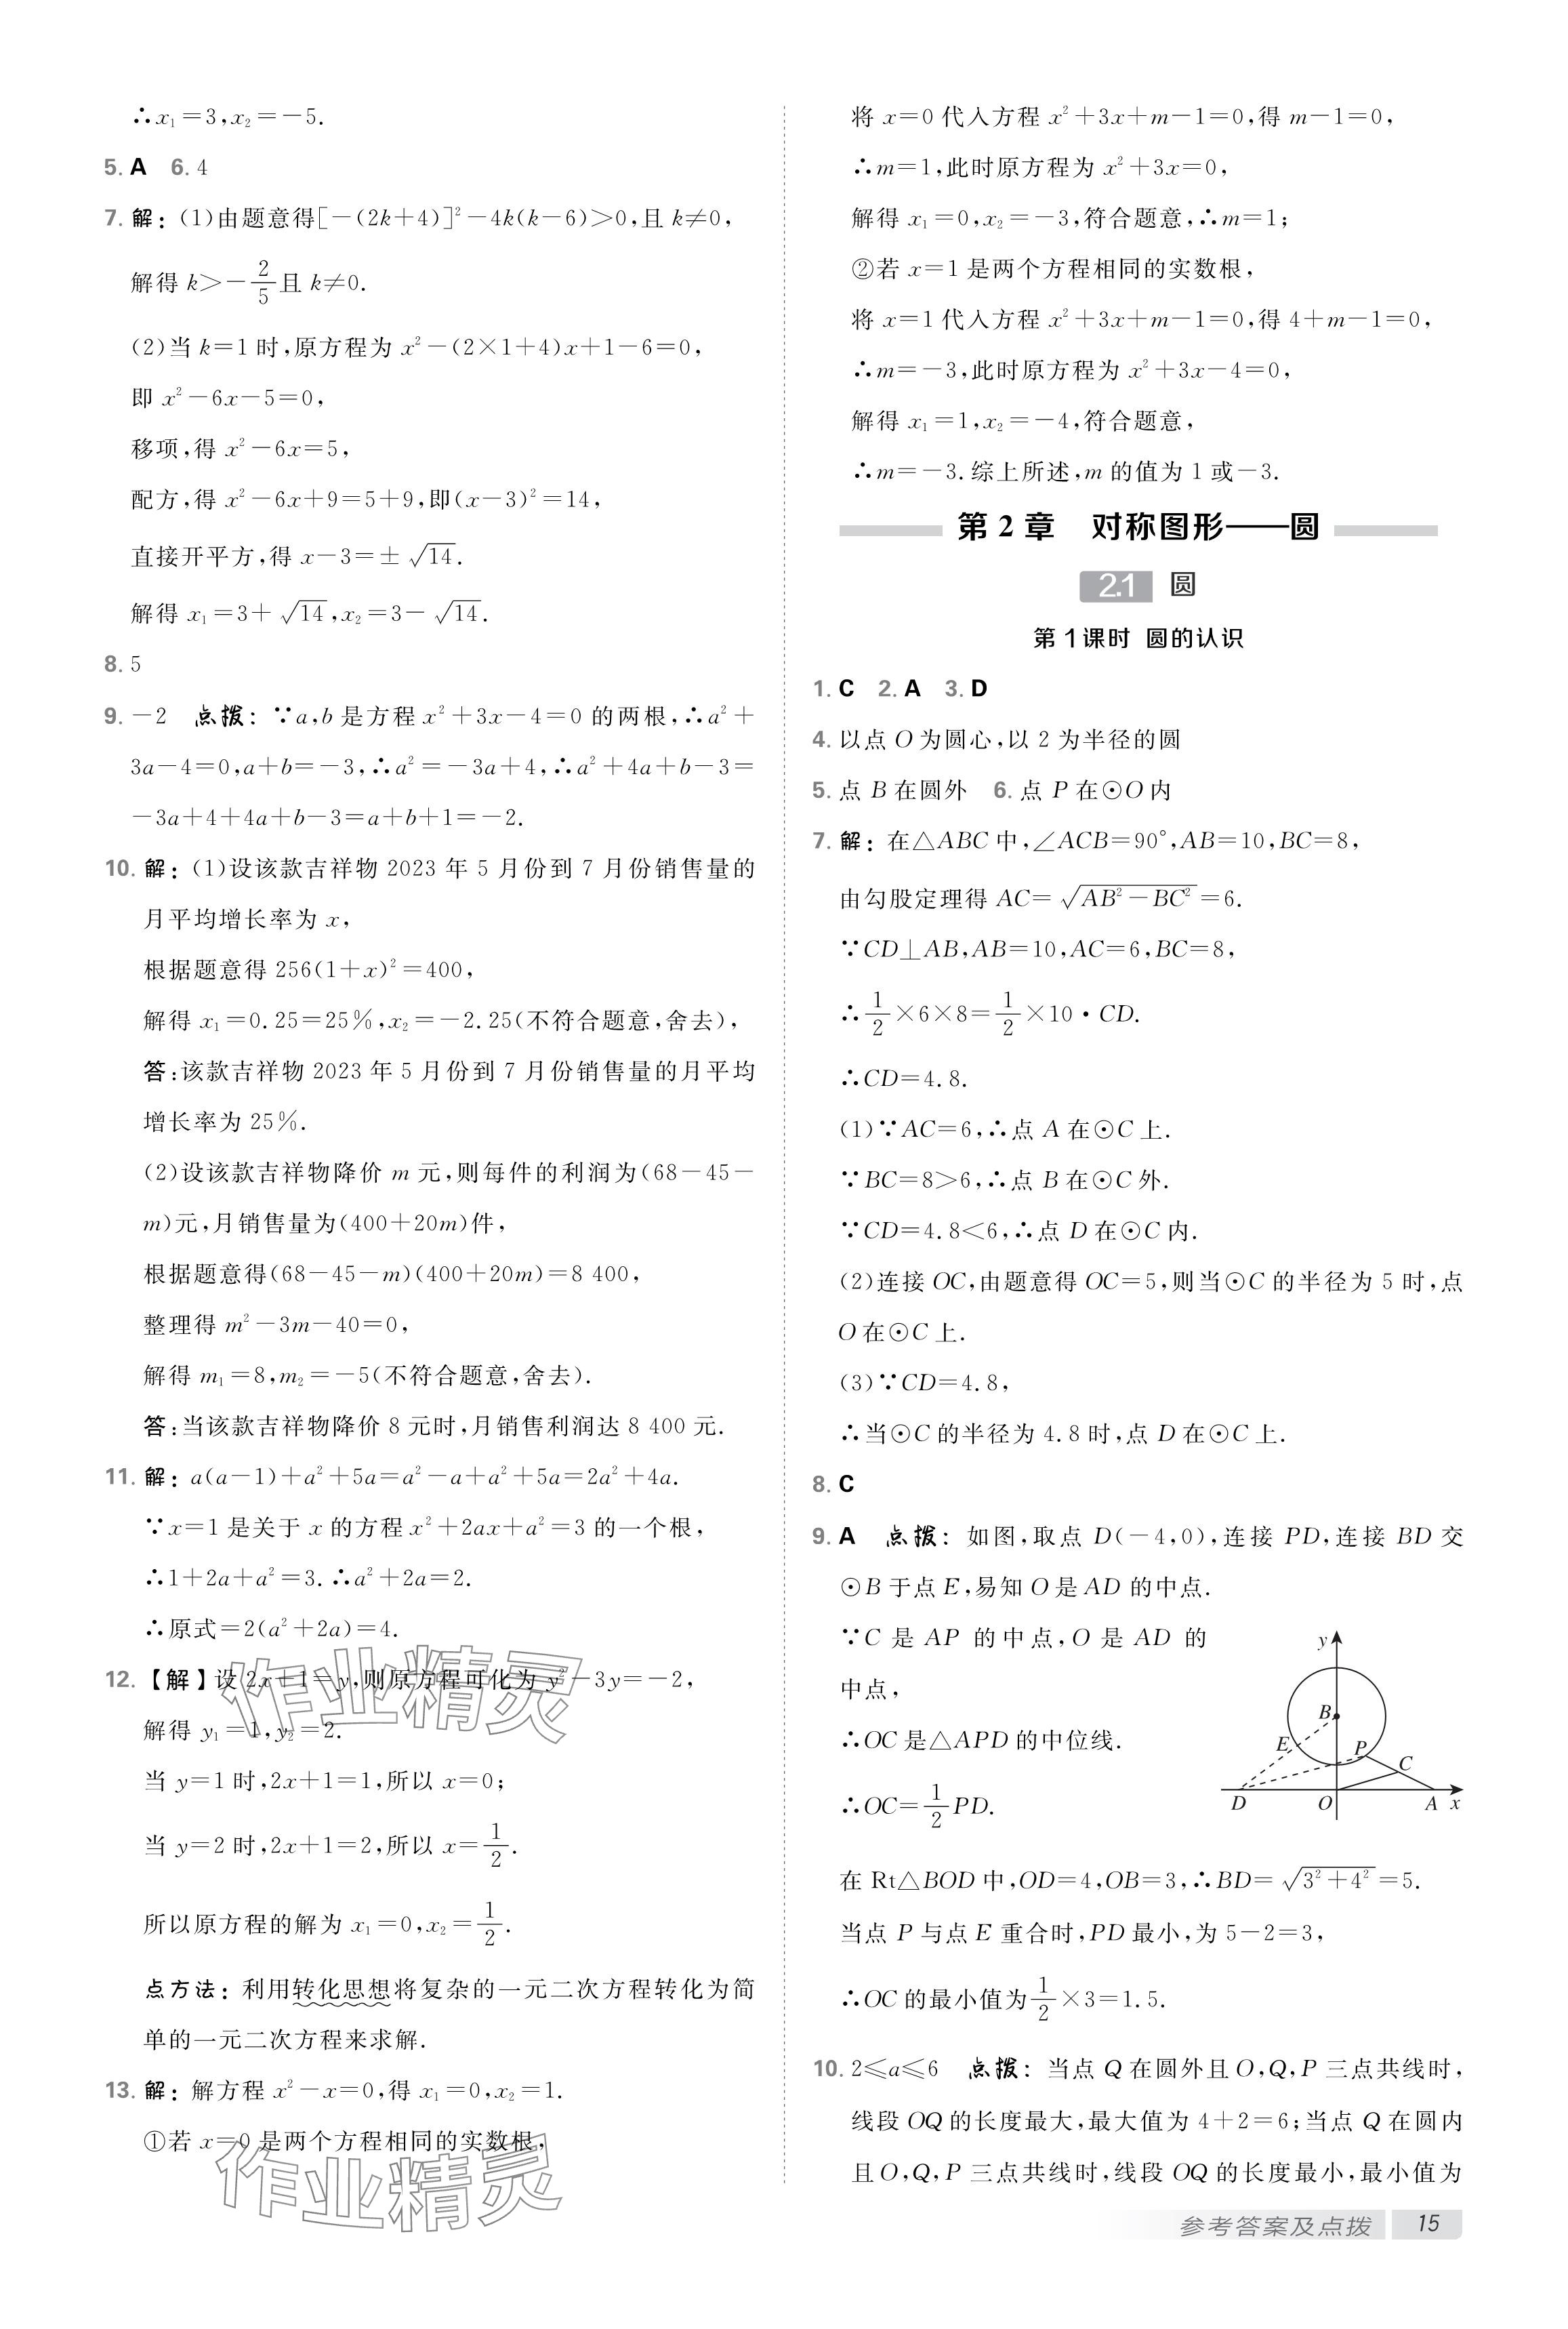 ∴x₁=3,x₂=-5.
5. A 6. 4
7. 解：(1)由题意得[-(2k+4)]²-4k(k-6)>0,且 k≠0,
解得 k>-2/5 且 k≠0.
(2)当 k=1 时,原方程为 x²-(2×1+4)x+1-6=0,
即 x²-6x-5=0,
移项,得 x²-6x=5,
配方,得 x²-6x+9=5+9,即(x-3)²=14,
直接开平方,得 x-3=±√14.
解得 x₁=3+√14,x₂=3-√14.
8. 5
9. -2 点拨：∵a,b 是方程 x²+3x-4=0 的两根,∴a²+
3a-4=0,a+b=-3,∴a²=-3a+4,∴a²+4a+b-3=
-3a+4+4a+b-3=a+b+1=-2.
10. 解：(1)设该款吉祥物 2023 年 5 月份到 7 月份销售量的
月平均增长率为 x,
根据题意得 256(1+x)²=400,
解得 x₁=0.25=25%,x₂=-2.25(不符合题意,舍去),
答:该款吉祥物 2023 年 5 月份到 7 月份销售量的月平均
增长率为 25%.
(2)设该款吉祥物降价 m 元,则每件的利润为(68-45-
m)元,月销售量为(400+20m)件,
根据题意得(68-45-m)(400+20m)=8 400,
整理得 m²-3m-40=0,
解得 m₁=8,m₂=-5(不符合题意,舍去).
答:当该款吉祥物降价 8 元时,月销售利润达 8 400 元.
11. 解：a(a-1)+a²+5a=a²-a+a²+5a=2a²+4a.
∵x=1 是关于 x 的方程 x²+2ax+a²=3 的一个根,
∴1+2a+a²=3.∴a²+2a=2.
∴原式=2(a²+2a)=4.
12. 【解】设 2x+1=y,则原方程可化为 y²-3y=-2,
解得 y₁=1,y₂=2.
当 y=1 时,2x+1=1,所以 x=0;
当 y=2 时,2x+1=2,所以 x=1/2.
所以原方程的解为 x₁=0,x₂=1/2.
点方法：利用转化思想将复杂的一元二次方程转化为简
单的一元二次方程来求解.
13. 解：解方程 x²-x=0,得 x₁=0,x₂=1.
①若 x=0 是两个方程相同的实数根,
作业精灵
作业精灵
将 x=0 代入方程 x²+3x+m-1=0,得 m-1=0,
∴m=1,此时原方程为 x²+3x=0,
解得 x₁=0,x₂=-3,符合题意,∴m=1;
②若 x=1 是两个方程相同的实数根,
将 x=1 代入方程 x²+3x+m-1=0,得 4+m-1=0,
∴m=-3,此时原方程为 x²+3x-4=0,
解得 x₁=1,x₂=-4,符合题意,
∴m=-3.综上所述,m 的值为 1 或-3.
第 2 章 对称图形——圆
2.1 圆
第 1 课时 圆的认识
1. C 2. A 3. D
4. 以点 O 为圆心,以 2 为半径的圆
5. 点 B 在圆外 6. 点 P 在⊙O 内
7. 解：在△ABC 中,∠ACB=90°,AB=10,BC=8,
由勾股定理得 AC=√(AB²-BC²)=6.
∵CD⊥AB,AB=10,AC=6,BC=8,
∴1/2×6×8=1/2×10·CD.
∴CD=4.8.
(1)∵AC=6,∴点 A 在⊙C 上.
∵BC=8>6,∴点 B 在⊙C 外.
∵CD=4.8<6,∴点 D 在⊙C 内.
(2)连接 OC,由题意得 OC=5,则当⊙C 的半径为 5 时,点
O 在⊙C 上.
(3)∵CD=4.8,
∴当⊙C 的半径为 4.8 时,点 D 在⊙C 上.
8. C
9. A 点拨：如图,取点 D(-4,0),连接 PD,连接 BD 交
⊙B 于点 E,易知 O 是 AD 的中点.
∵C 是 AP 的中点,O 是 AD 的
中点,
∴OC 是△APD 的中位线.
∴OC=1/2PD.
y
B
E
P
C
D
O
A
x
在 Rt△BOD 中,OD=4,OB=3,∴BD=√(3²+4²)=5.
当点 P 与点 E 重合时,PD 最小,为 5-2=3,
∴OC 的最小值为1/2×3=1.5.
10. 2≤a≤6 点拨：当点 Q 在圆外且 O,Q,P 三点共线时,
线段 OQ 的长度最大,最大值为 4+2=6;当点 Q 在圆内
且 O,Q,P 三点共线时,线段 OQ 的长度最小,最小值为
参考答案及点拨 15